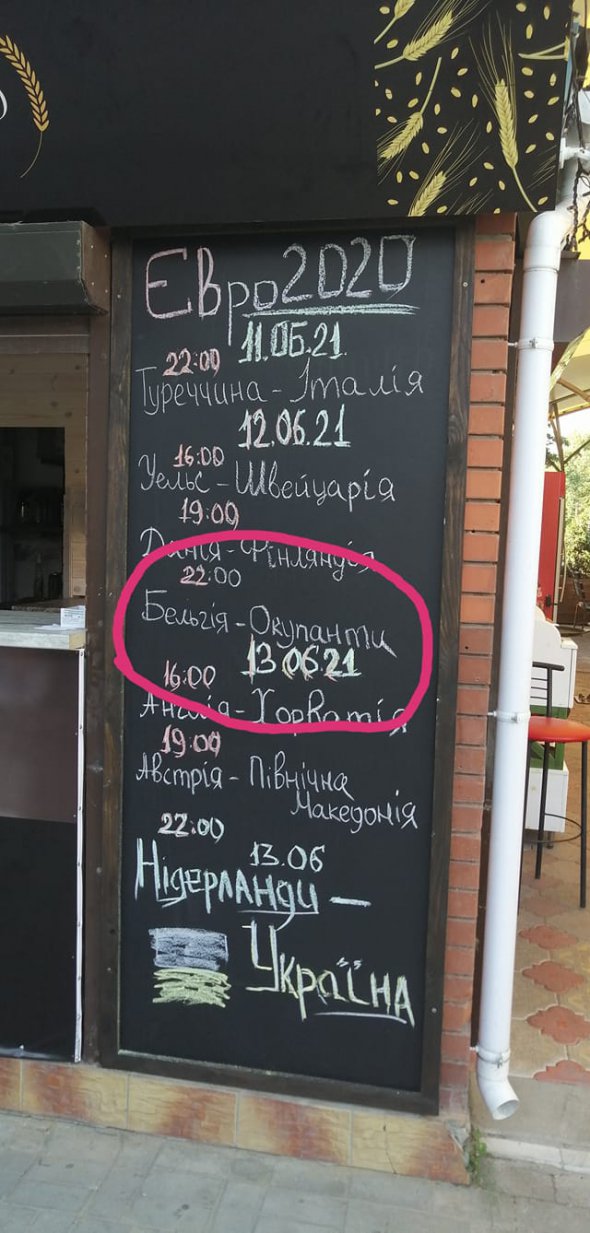 Євро2020
11.06.21
22:00
Туреччина - Італія
12.06.21
16:00
Уельс - Швейцарія
19:00
Данія - Фінляндія
22:00
Бельгія - Окупанти
13.06.21
16:00
Англія - Хорватія
19:00
Австрія - Північна
Македонія
22:00
13.06
Нідерланди -
Україна